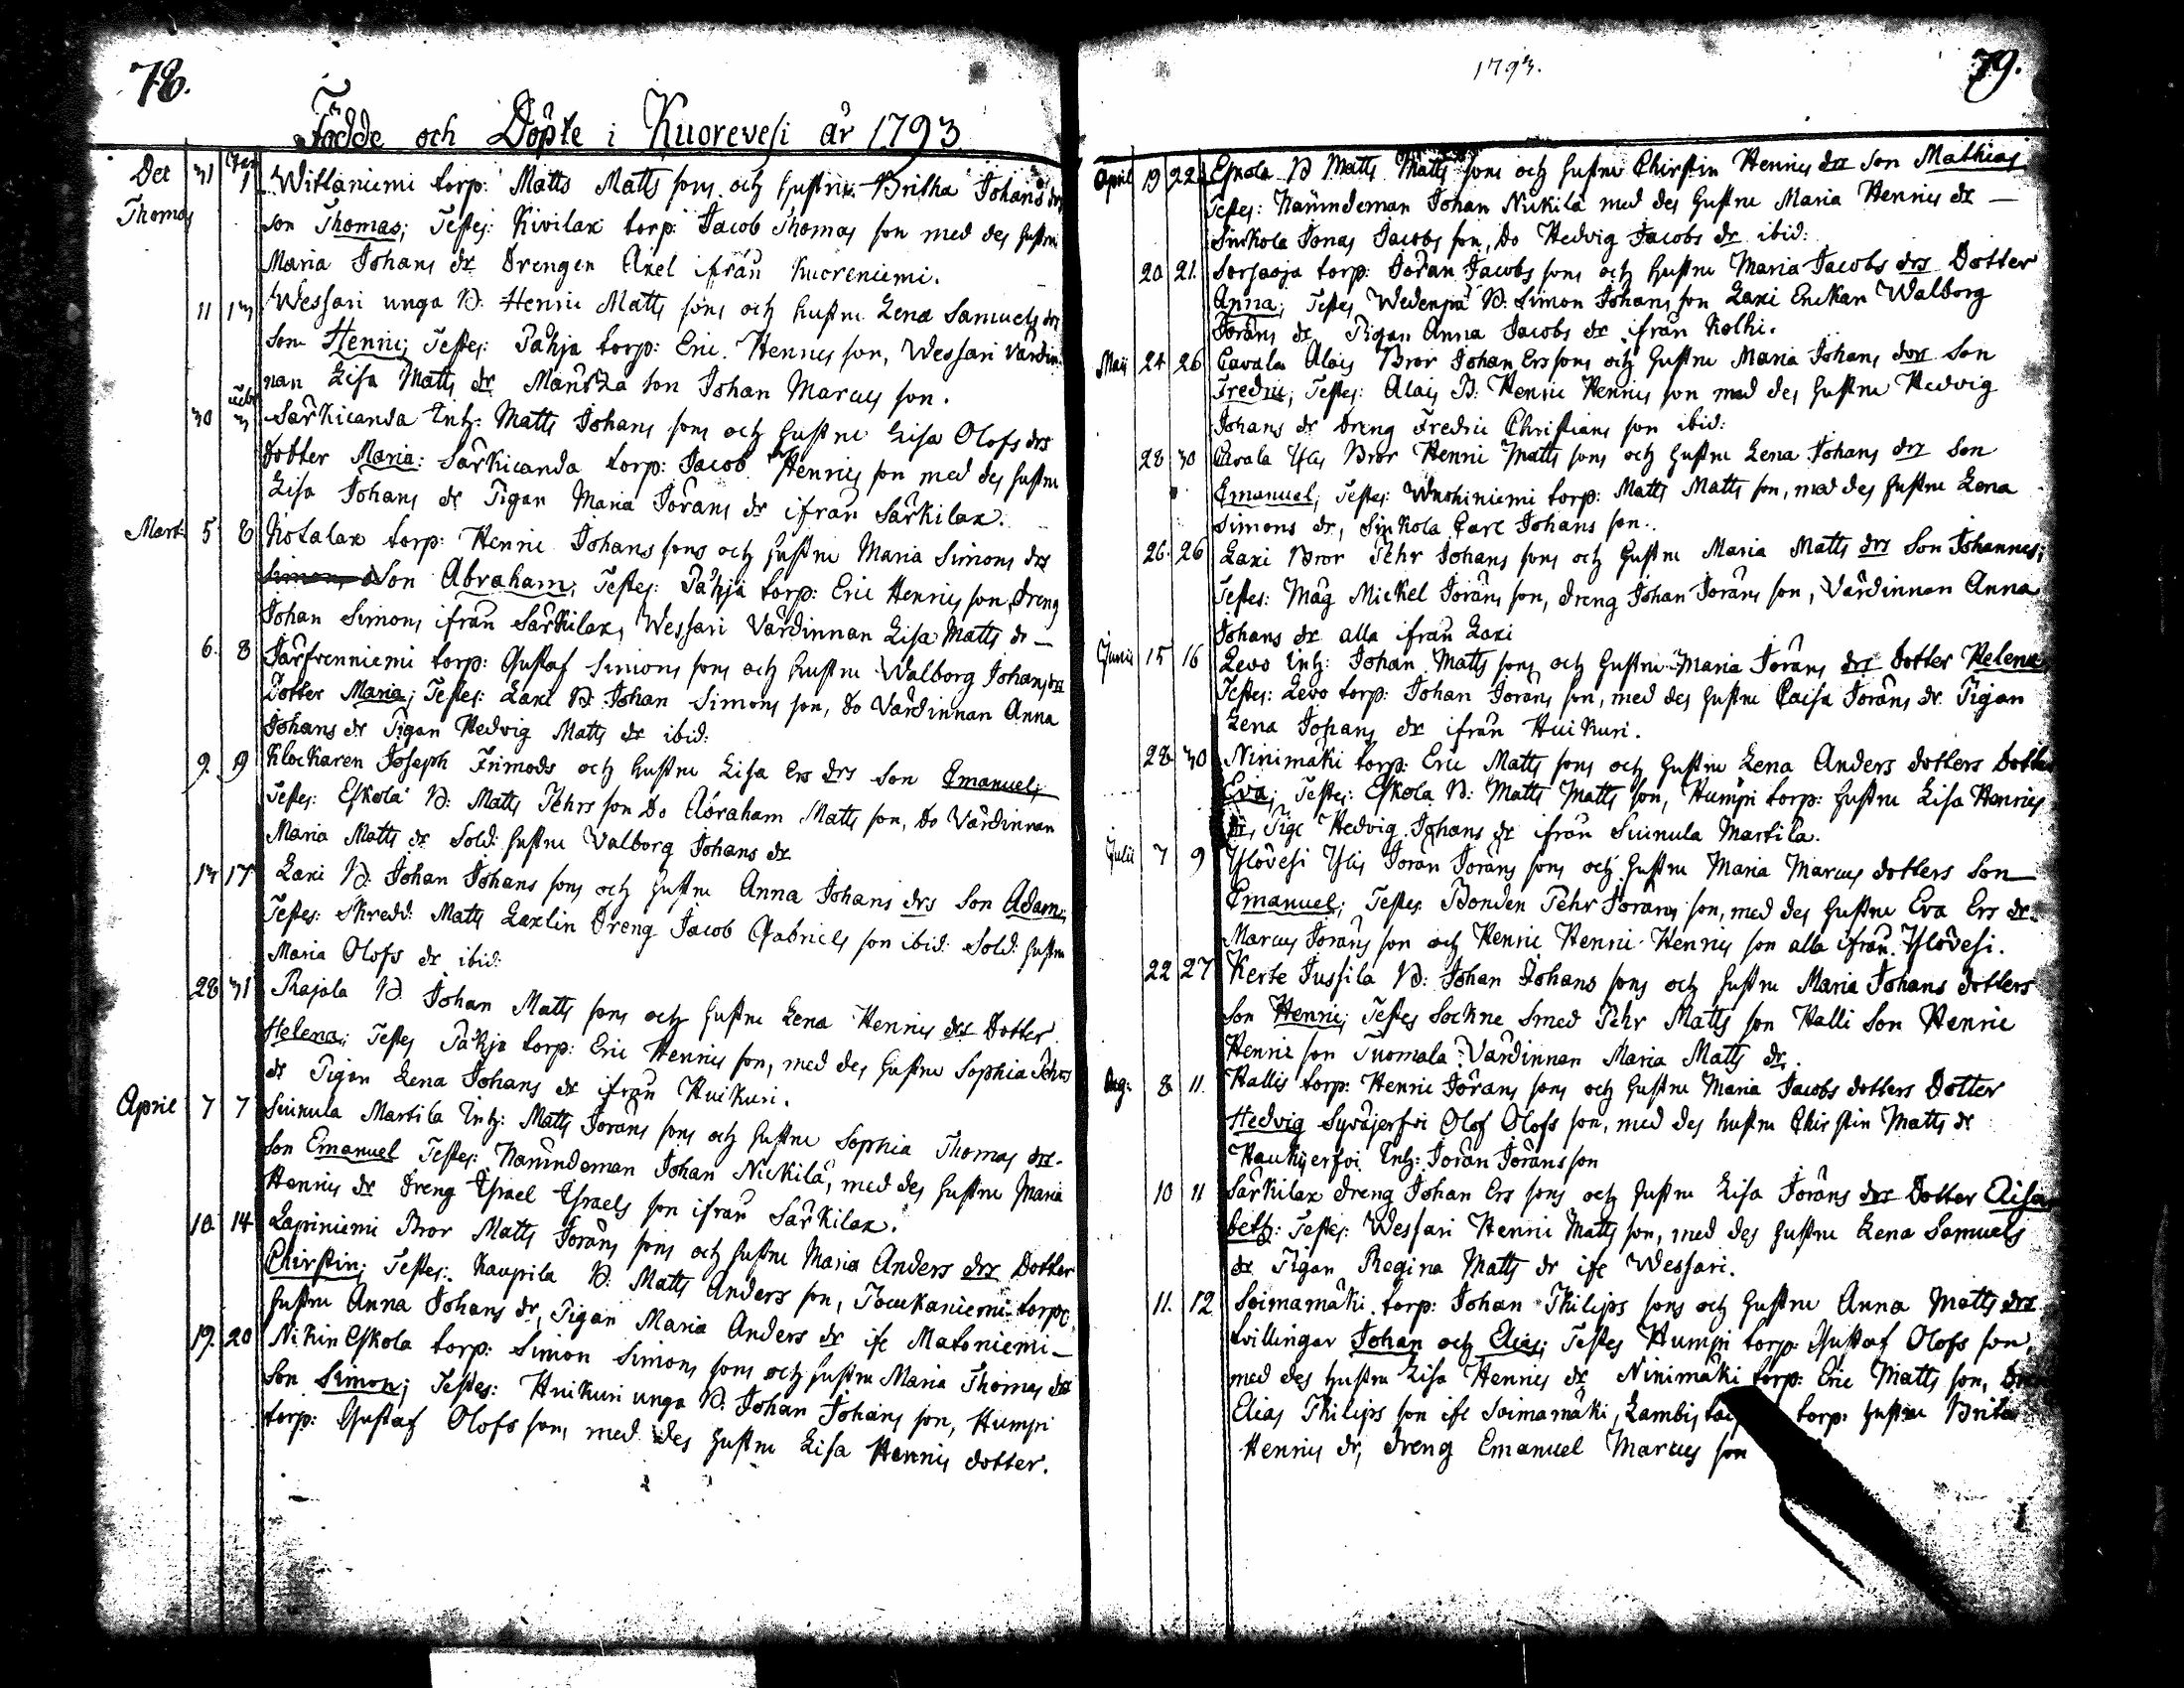 78.
Födde och Döpte i Kuorevesi år 1793
Dec 31 Jan 1 Witlaniemi torp: Matts Matts sons och hustrus Britha Johans drs
Thomas son Thomas; Testes: Kivilax torp: Jacob Thomas son med des hustru
Maria Johans dr Drengen Axel ifrån Kuoreniemi.
11 13 Wessari unga B: Henric Matts sons och hustru Lena Samuels drs
Son Henric; Testes: Påhja torp: Eric Henrics son, Wessari Värdin-
nan Lisa Matts dr Mandza son Johan Marcus son.
30 Febr 3 Särkicanda Inh: Matts Johans sons och hustru Lisa Olofs drs
Dotter Maria: Särkicanda torp: Jacob Henrics son med des hustru
Lisa Johans dr Pigan Maria Jörans dr ifrån Särkilax.
Mart: 5 8 Kotalax torp: Henric Johans sons och hustru Maria Simons drs
Son Abraham; Testes: Påhja torp: Eric Henrics son, dreng
Johan Simons ifrån Särkilax, Wessari Värdinnan Lisa Matts dr —
6. 8 Järfvenniemi torp: Gustaf Simons sons och hustru Walborg Johans drs
Dotter Maria; Testes: Laxi B: Johan Simons son, Do Värdinnan Anna
Johans dr Pigan Hedvig Matts dr ibid:
9. 9 Klockaren Joseph Frimods och hustru Lisa Ers drs Son Emanuel;
Testes: Eskola B: Matts Pehrs son Do Abraham Matts son, Do Värdinnan
Maria Matts dr Sold: hustru Valborg Johans dr
13 17 Laxi B: Johan Johans sons och hustru Anna Johans drs Son Adam;
Testes: Skredd: Matts Laxlin Dreng Jacob Gabriels son ibid: Sold: hustru
Maria Olofs dr ibid:
28 31 Rajala B: Johan Matts sons och hustru Lena Henrics drs Dotter
Helena; Testes Påhja torp: Eric Henrics son, med des hustru Sophia Pehrs
dr Pigan Lena Johans dr ifrån Huikuri.
April 7 7 Suinula Martila Inh: Matts Jörans sons och hustru Sophia Thomas drs
Son Emanuel Testes: Nämndeman Johan Nickilä, med des hustru Maria
Henrics dr Dreng Israel Israels son ifrån Särkilax.
10. 14 Lapiniemi Bror Matts Jörans sons och hustru Maria Anders drs Dotter
Chirstin; Testes: Kaupila B: Matts Anders son, torp:
hustru Anna Johans dr, Pigan Maria Anders dr ifr Matoniemi —
19. 20 Nikin Eskola torp: Simon Simons sons och hustru Maria Thomas drs
Son Simon; Testes: Huikuri unga B: Johan Johans son, Humpi
torp: Gustaf Olofs son, med des hustru Lisa Henrics dotter.
1793.
79.
April 19 22. Eskola B Matts Matts sons och hustru Chirstin Henrics drs son Mathias
Testes: Nämndeman Johan Nickilä med des hustru Maria Henrics dr —
Sinkola Jonas Jacobs son, Do Hedvig Jacobs dr ibid:
20 21. Sorsaoja torp: Jöran Jacobs sons och hustru Maria Jacobs drs Dotter
Anna; Testes B: Simon Johans son Laxi Enckan Walborg
Jörans dr Pigan Anna Jacobs dr ifrån Kolhi.
Maij 24 26 Pavala Alais Bror Johan Ers sons och hustru Maria Johans drs Son
Fredric; Testes: Alais B: Henric Henrics son med des hustru Hedvig
Johans dr Dreng Fredric Christians son ibid:
28 30 Pavala Ylis Bror Henric Matts sons och hustru Lena Johans drs Son
Emanuel; Testes: torp: Matts Matts son, med des hustru Lena
Simons dr, Sinkola Carl Johans son.
26. 26 Laxi Bror Pehr Johans sons och hustru Maria Matts drs Son Johannes;
Testes: Måg Mickel Jörans son, dreng Johan Jörans son, Värdinnan Anna
Johans dr alla ifrån Laxi
Junii 15 16 Levo Inh: Johan Matts sons och hustru Maria Jörans drs Dotter Helena
Testes: Levo torp: Johan Jörans son, med des hustru Caisa Jörans dr Pigan
Lena Johans dr ifrån Huikuri.
28 30 Ninimäki torp: Eric Matts sons och hustru Lena Anders dotters Dotter
Eva; Testes: Eskola B: Matts Matts son, Humpi torp: hustru Lisa Henrics
dr, Pige Hedvig Johans dr ifrån Suinula Martila.
Julii 7 9 Ylövesi Ylis Jöran Jörans sons och hustru Maria Marcus dotters Son
Emanuel; Testes Bonden Pehr Jörans son, med des hustru Eva Ers dr.
Marcus Jörans son och Henric Henric Henrics son alla ifrån Ylövesi.
22 27 Kerte Jussila B: Johan Johans sons och hustru Maria Johans dotters
Son Henric; Testes Sockne Smed Pehr Matts son Halli Son Henric
Henric son Tuomala Värdinnan Maria Matts dr.
Aug: 8 11. Hallis torp: Henric Jörans sons och hustru Maria Jacobs dotters Dotter
Hedvig Syväjerfvi Olof Olofs son, med des hustru Chirstin Matts dr
Haukijerfvi Inh: Jöran Jörans son
10 11 Särkilax Dreng Johan Ers sons och hustru Lisa Jörans drs Dotter Elisa
beth: Testes: Wessari Henric Matts son, med des hustru Lena Samuels
dr Pigan Regina Matts dr ifr Wessari.
11. 12 Soimamäki torp: Johan Philips sons och hustru Anna Matts drs
tvillingar Johan och Elias; Testes Humpi torp: Gustaf Olofs son,
med des hustru Lisa Henrics dr Ninimäki torp: Eric Matts son,
Elias Philips son ifr Soimamäki, torp: hustru Brita
Henrics dr, dreng Emanuel Marcus son